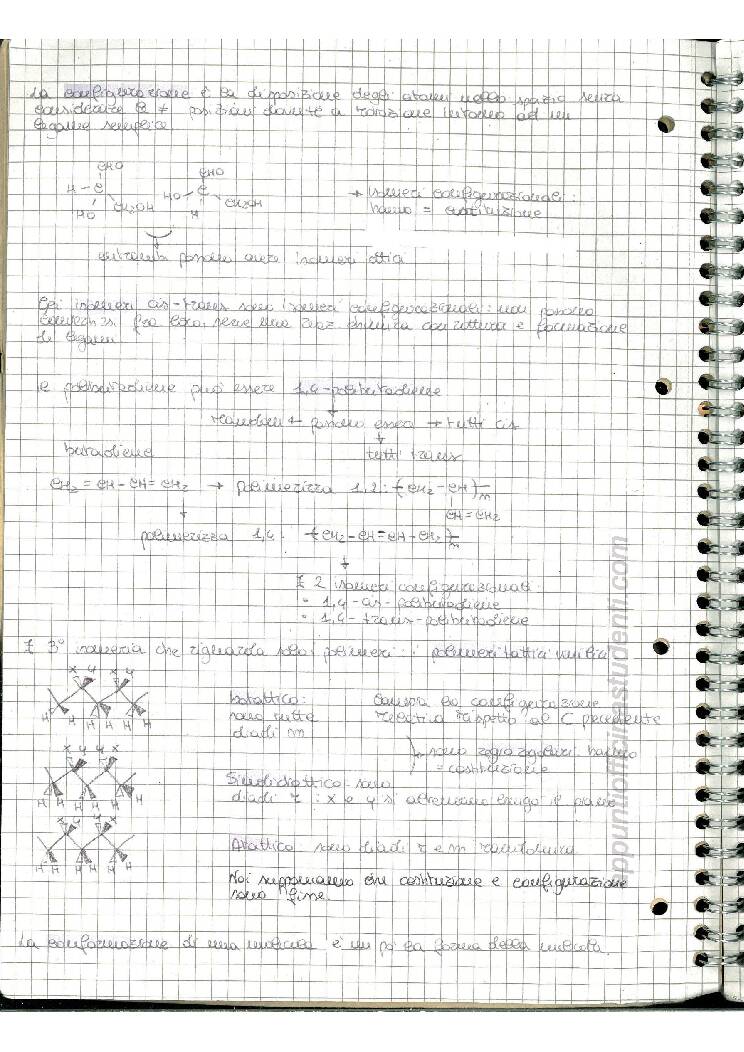 La configurazione è la disposizione degli atomi nello spazio senza
considerare le ≠ posizioni dovute a rotazione intorno ad un
legame semplice.
CHO
CHO
H - C
HO - C
→ isomeri configurazionali:
CH2OH
CH2OH
HO
H
hanno = costituzione
entrambi possono avere isomeri ottici
Gli isomeri cis-trans sono isomeri configurazionali: non possono
convertirsi fra loro, serve una reaz. chimica con rottura e formazione
di legami
Il polibutadiene può essere 1,4-polibutadiene
random ← possono essere → tutti cis
butadiene
tutti trans
CH2 = CH - CH = CH2 → polimerizza 1,2: -(CH2 - CH)-n
CH = CH2
polimerizza 1,4: -(CH2 - CH = CH - CH2)-n
2 isomeri configurazionali
- 1,4-cis-polibutadiene
- 1,4-trans-polibutadiene
3° isomeria che riguarda solo i polimeri: i polimeri tattici vinilici
x y x
H H H H
Isotattico:
sono tutte
diadi m
la configurazione
relativa rispetto al C precedente
sono regioregolari, hanno
= costituzione
x y y x
H H H H
Sindiotattico sono
diadi r : x e y si alternano lungo il piano
x y x y
H H H H
Atattico sono diadi r e m random
Noi supponiamo che costituzione e configurazione
sono "fine"
La conformazione di una molecola è un po' la forma della molecola.
appuntiofficinastudenti.com